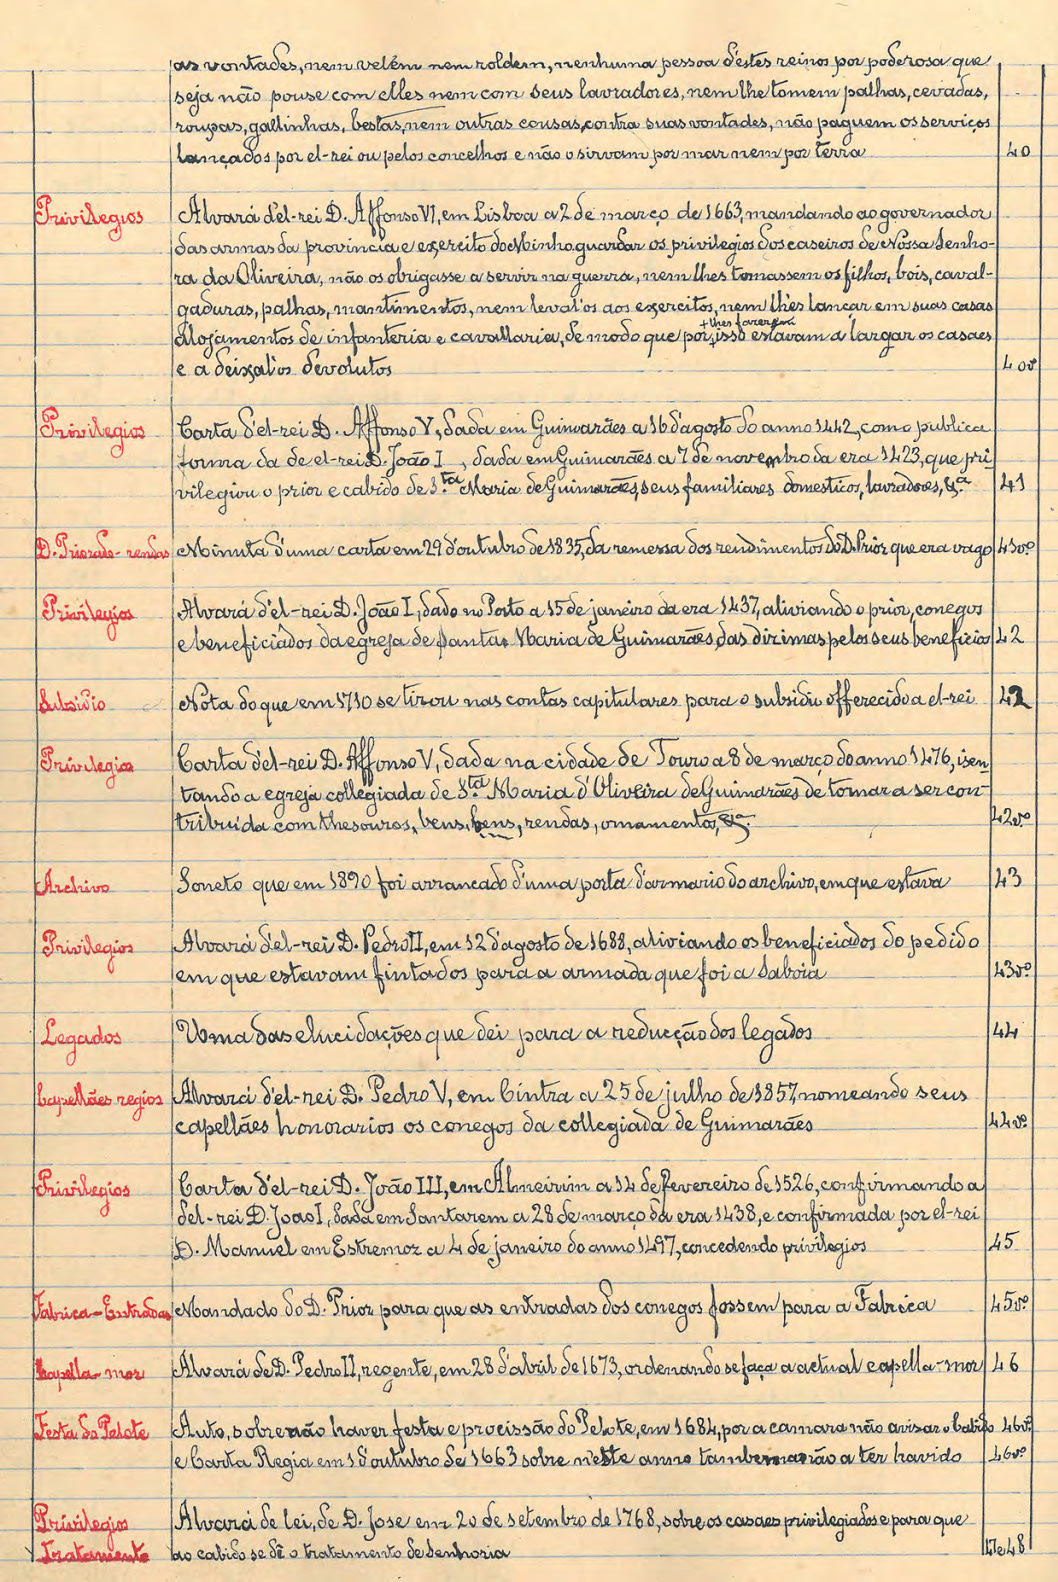 as vontades, nem velém nem roldem, nenhuma pessoa d'estes reinos por poderosa que
seja não pouse com elles nem com seus lavradores, nem lhe tomem palhas, cevadas,
roupas, gallinhas, bestas, nem outras cousas, contra suas vontades, não paguem os serviços
lançados por el-rei ou pelos concelhos e não o sirvam por mar nem por terra 40
Privilegios Alvará d'el-rei D. Affonso VI, em Lisboa a 2 de março de 1663, mandando ao governador
das armas da provincia e exercito do Minho guardar os privilegios dos caseiros de Nossa Senho-
ra da Oliveira, não os obrigasse a servir na guerra, nem lhes tomassem os filhos, bois, caval-
gaduras, palhas, mantimentos, nem leval'os aos exercitos, nem lhes lançar em suas casas
+ lhes fazerem
alojamentos de infanteria e cavallaria, de modo que por + isso estavam a largar os casaes
e a deixal'os devolutos 40vº
Privilegios Carta d'el-rei D. Affonso V, dada em Guimarães a 16 d'agosto do anno 1442, como publica
forma da de el-rei D. João I, dada em Guimarães a 7 de novembro da era 1423, que pri
vilegiou o prior e cabido de S.ta Maria de Guimarães, seus familiares domesticos, lavradores, &.a 41
D. Priorado - rendas Minuta d'uma carta em 29 d'outubro de 1835, da remessa dos rendimentos do D. Prior que era vago 41vº
Privilegios Alvará d'el-rei D. João I, dado no Porto a 15 de janeiro da era 1437, aliviando o prior, conegos
e beneficiados da egreja de Santa Maria de Guimarães, das dizimas pelos seus beneficios 42
Subsidio Nota do que em 1710 se tirou nas contas capitulares para o subsidio offerecido a el-rei 42
Privilegios Carta d'el-rei D. Affonso V, dada na cidade de Touro a 8 de março do anno 1476, isen
tando a egreja collegiada de S.ta Maria d'Oliveira de Guimarães de tornar a ser con-
tribuida com thesouros, bens, bens, rendas, ornamentos, &.a 42vº
Archivo Soneto que em 1890 foi arrancado d'uma porta d'armario do archivo, em que estava 43
Privilegios Alvará d'el-rei D. Pedro II, em 12 d'agosto de 1688, aliviando os beneficiados do pedido
em que estavam fintados para a armada que foi a Saboia 43vº
Legados Uma das elucidações que dei para a reducção dos legados 44
Capelhães regios Alvará d'el-rei D. Pedro V, em Cintra a 25 de julho de 1857, nomeando seus
capellães honorarios os conegos da collegiada de Guimarães 44vº
Privilegios Carta d'el-rei D. João III, em Almeirim a 14 de fevereiro de 1526, confirmando a
del-rei D. Joao I, dada em Santarem a 28 de março da era 1438, e confirmada por el-rei
D. Manuel em Estremoz a 4 de janeiro do anno 1497, concedendo privilegios 45
Fabrica - Entradas Mandado do D. Prior para que as entradas dos conegos fossem para a Fabrica 45vº
Capella-mor Alvará de D. Pedro II, regente, em 28 d'abril de 1673, ordenando se faça a actual capella-mor 46
Festa do Pelote Auto, sobre não haver festa e procissão do Pelote, em 1684, por a camara não avisar o Cabido 46vº
e Carta Regia em 1 d'outubro de 1663 sobre n'este anno tambem a não a ter havido 46vº
Privilegios Alvará de lei, de D. Jose em 20 de setembro de 1768, sobre os casaes privilegiados e para que
Tratamento ao cabido se dê o tratamento de Senhoria 47 e 48